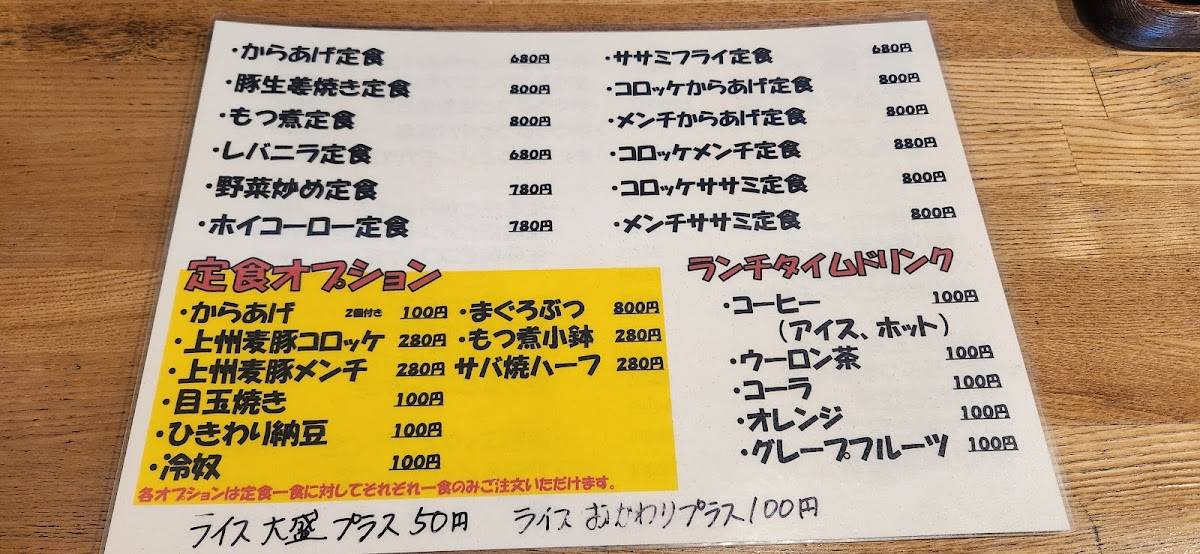 ・からあげ定食 680円
・豚生姜焼き定食 800円
・もつ煮定食 800円
・レバニラ定食 680円
・野菜炒め定食 780円
・ホイコーロー定食 780円
・ササミフライ定食 680円
・コロッケからあげ定食 800円
・メンチからあげ定食 800円
・コロッケメンチ定食 880円
・コロッケササミ定食 800円
・メンチササミ定食 800円
定食オプション
・からあげ 2個付き 100円
・上州麦豚コロッケ 280円
・上州麦豚メンチ 280円
・目玉焼き 100円
・ひきわり納豆 100円
・冷奴 100円
・まぐろぶつ 800円
・もつ煮小鉢 280円
サバ焼ハーフ 280円
各オプションは定食一食に対してそれぞれ一食のみご注文いただけます。
ランチタイムドリンク
・コーヒー 100円
(アイス、ホット)
・ウーロン茶 100円
・コーラ 100円
・オレンジ 100円
・グレープフルーツ 100円
ライス 大盛 プラス 50円
ライス おかわりプラス100円